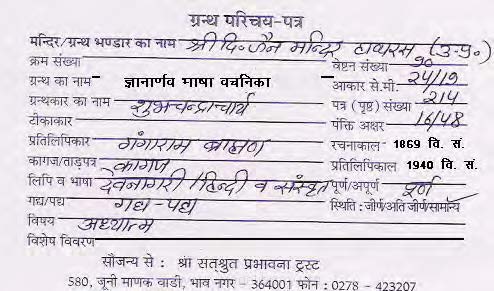 ग्रन्थ परिचय-पत्र
मन्दिर/ग्रन्थ भण्डार का नाम श्री दि. जैन मन्दिर हाथरस (उ.प्र.)
क्रम संख्या वेष्टन संख्या 90
ग्रन्थ का नाम - ज्ञानार्णव भाषा वचनिका आकार से.मी. 24/19
ग्रन्थकार का नाम शुभचन्द्राचार्य पत्र (पृष्ठ) संख्या 214
टीकाकार पंक्ति अक्षर 16/48
प्रतिलिपिकार गंगाराम ब्राह्मण रचनाकाल - 1869 वि. सं.
कागज/ताड़पत्र कागज प्रतिलिपिकाल 1940 वि. सं.
लिपि व भाषा देवनागरी/हिन्दी व संस्कृत पूर्ण/अपूर्ण पूर्ण
गद्य/पद्य गद्य-पद्य स्थिति : जीर्ण/अति जीर्ण/सामान्य
विषय अध्यात्म
विशेष विवरण
सौजन्य से : श्री सत्श्रुत प्रभावना ट्रस्ट
580, जूनी माणक वाडी, भाव नगर - 364001 फोन : 0278 - 423207